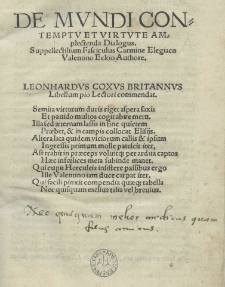 DE MVNDI CON-
TEMPTV ET VIRTVTE AM-
plectenda Dialogus.
Suppellectilium Fasciculus Carmine Elegiaco
Valentino Eckio Authore.
LEONHARDVS COXVS BRITANNVS
Libellum pio Lectori commendat.
Semita virtutum duris riget aspera saxis
Et paucis multos cogit abire metu.
Illa sed æternam lassis in fine quietem
Præbet, & in campis collocat Elisijs.
Altera lata quidem viciorum callis & ipsum
Ingressis primum molle patescit iter,
Ast rabit in præceps voluitque per ardua captos
Hæc infœlices meta subinde manet.
Qui cupit Herculeis insistere passibus ergo
Ille Valentino iam duce carpat iter.
Qui facili pinxit compendia quæque tabella
Nec quisquam melius tuta vel breuius.
Nec quisquam melior medicus quam
fidus amicus.